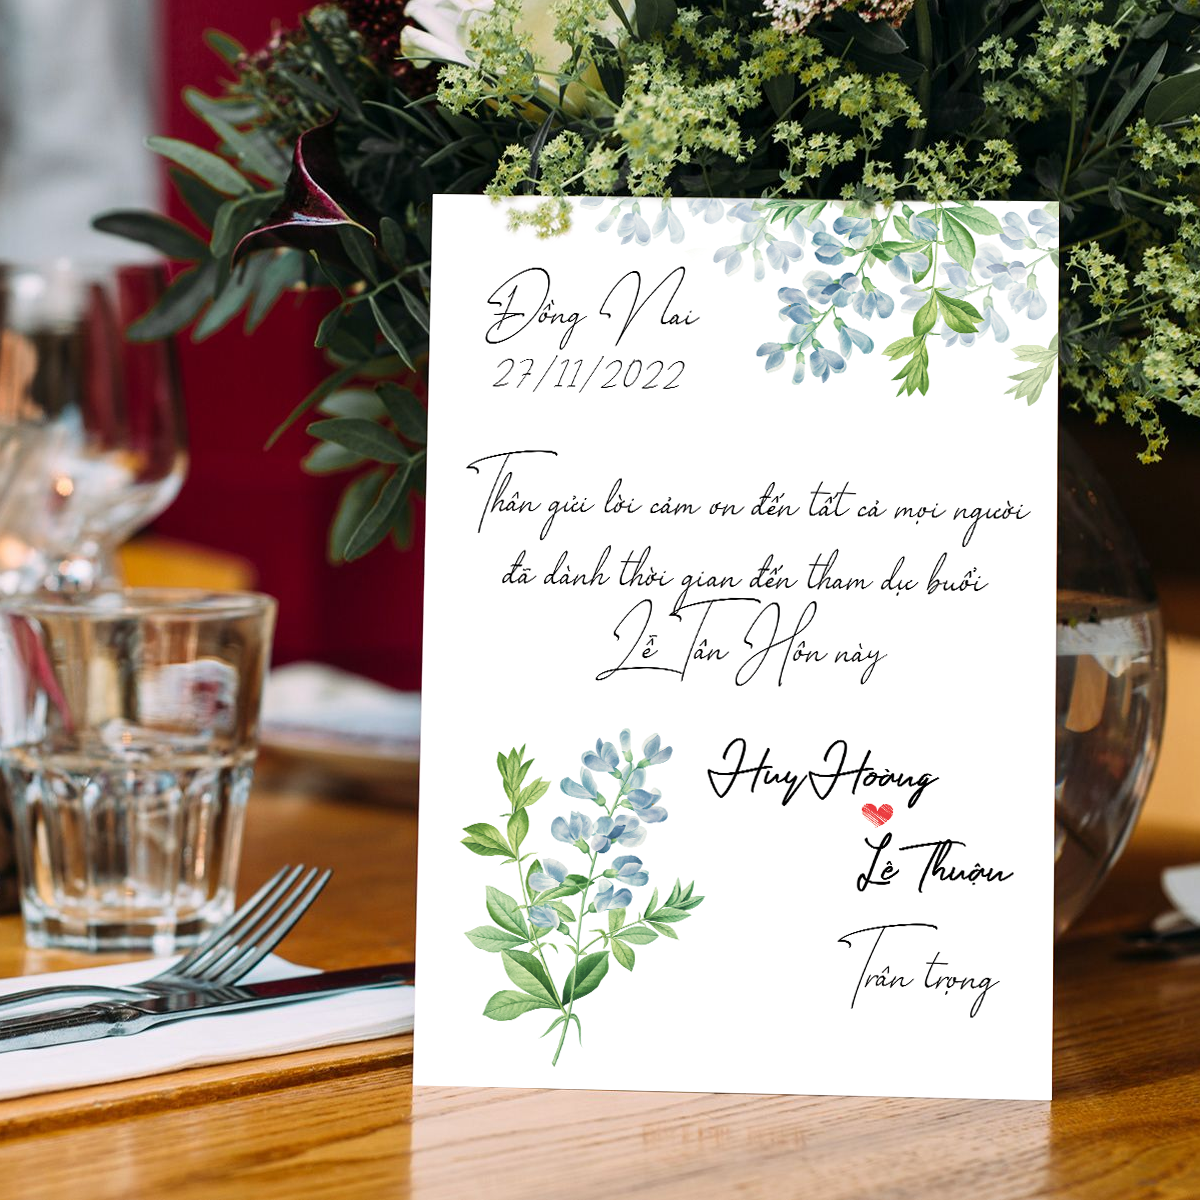 Đồng Nai
27/11/2022
Thân gửi lời cảm ơn đến tất cả mọi người
đã dành thời gian đến tham dự buổi
Lễ Tân Hôn này
Huy Hoàng
Lê Thuận
Trân trọng